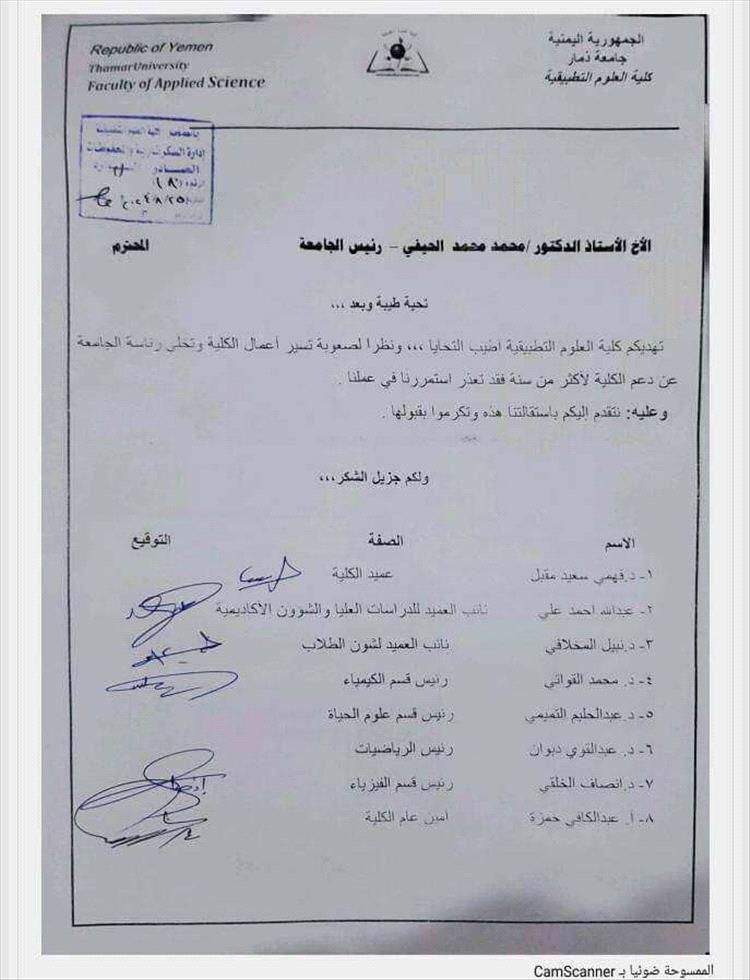 Republic of Yemen
ThamarUniversity
Faculty of Applied Science
الجمهورية اليمنية
جامعة ذمار
كلية العلوم التطبيقية
إدارة السكرتارية والمحفوظات
٢٠٢٤/٨/٢٥
الأخ الأستاذ الدكتور /محمد محمد الحيفي – رئيس الجامعة المحترم
تحية طيبة وبعد ,,,
تهديكم كلية العلوم التطبيقية اضيب التحايا ،،، ونظرا لصعوبة تسير أعمال الكلية وتخلي رئاسة الجامعة
عن دعم الكلية لأكثر من سنة فقد تعذر استمررنا في عملنا .
وعليه: نتقدم إليكم باستقالتنا هذه وتكرموا بقبولها .
ولكم جزيل الشكر،،،
الاسم الصفة التوقيع
١- د.فهمي سعيد مقبل عميد الكلية
٢- عبدالله احمد علي نائب العميد للدراسات العليا والشوون الأكاديمية
٣- د.نبيل المخلافي نائب العميد لشون الطلاب
٤- د. محمد القواتي رئيس قسم الكيمياء
٥- د.عبدالحليم التميمي رئيس قسم علوم الحياة
٦- د. عبدالقوي دبوان رئيس الرياضيات
٧- د.انصاف الخلقي رئيس قسم الفيزياء
٨- أ. عبدالكافي حمزة امين عام الكلية
الممسوحة ضوئيا بـ CamScanner